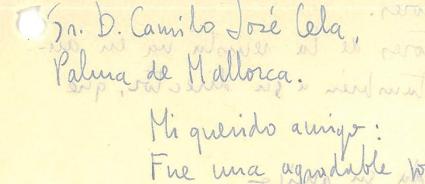 Sr. D. Camilo José Cela,
Palma de Mallorca.
Mi querido amigo:
Fue una agradable